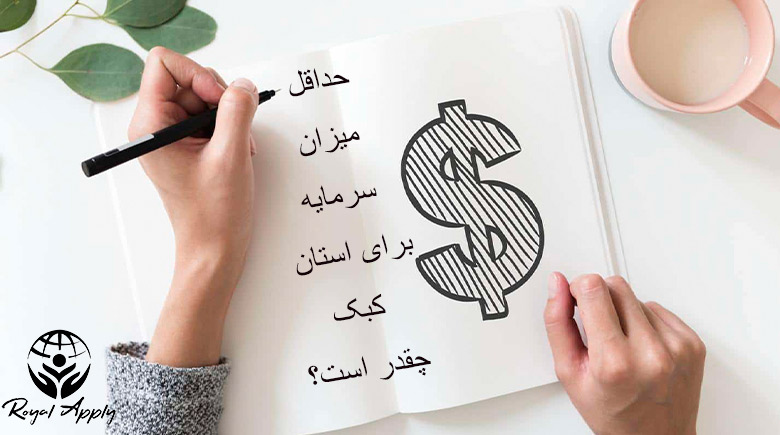 حداقل
میزان
سرمایه
برای استان
کبک
چقدر است؟
Royal Apply